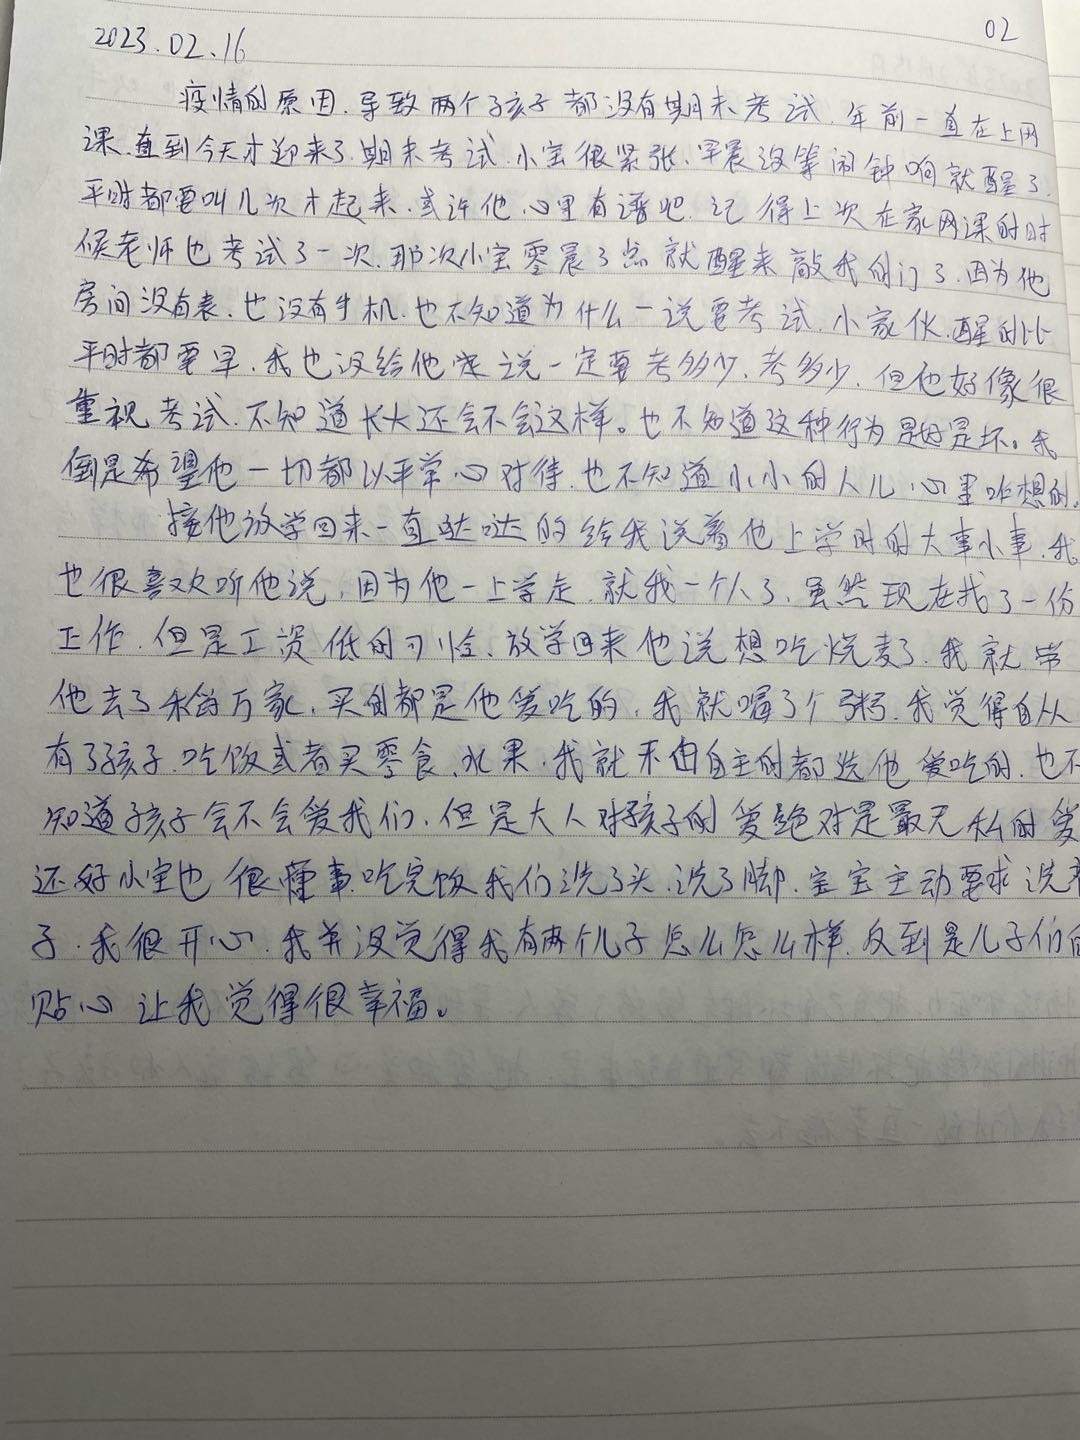 02
2023.02.16
疫情的原因.导致两个孩子都没有期末考试.年前一直在上网
课.直到今天才迎来了期末考试.小宝很紧张.早晨没等闹钟响就醒了.
平时都要叫几次才起来.或许他心里有谱吧.记得上次在家网课的时
候老师也考试了一次.那次小宝零晨3点就醒来敲我的门了.因为他
房间没有表.也没有手机.也不知道为什么一说要考试.小家伙.醒的比
平时都要早.我也没给他说一定要考多少.考多少.但他好像很
重视考试.不知道长大还会不会这样。也不知道这种行为是好是坏。我
倒是希望他一切都以平常心对待.也不知道小小的人儿心里咋想的。
接他放学回来一直哒哒的给我说着他上学时的大事小事.我
也很喜欢听他说,因为他一上学走.就我一个人了.虽然现在找了一份
工作.但是工资低的可怜.放学回来他说想吃烧麦了.我就带
他去了万家.买的都是他爱吃的.我就喝了个粥.我觉得自从
有了孩子.吃饭或者买零食.水果.我就不由自主的都选他爱吃的.也不
知道孩子会不会爱我们.但是大人对孩子的爱绝对是最无私的爱
还好小宝也很懂事.吃完饭我们洗了头.洗了脚.宝宝主动要求洗
子.我很开心.我并没觉得我有两个儿子怎么怎么样.反到是儿子们的
贴心让我觉得很幸福。